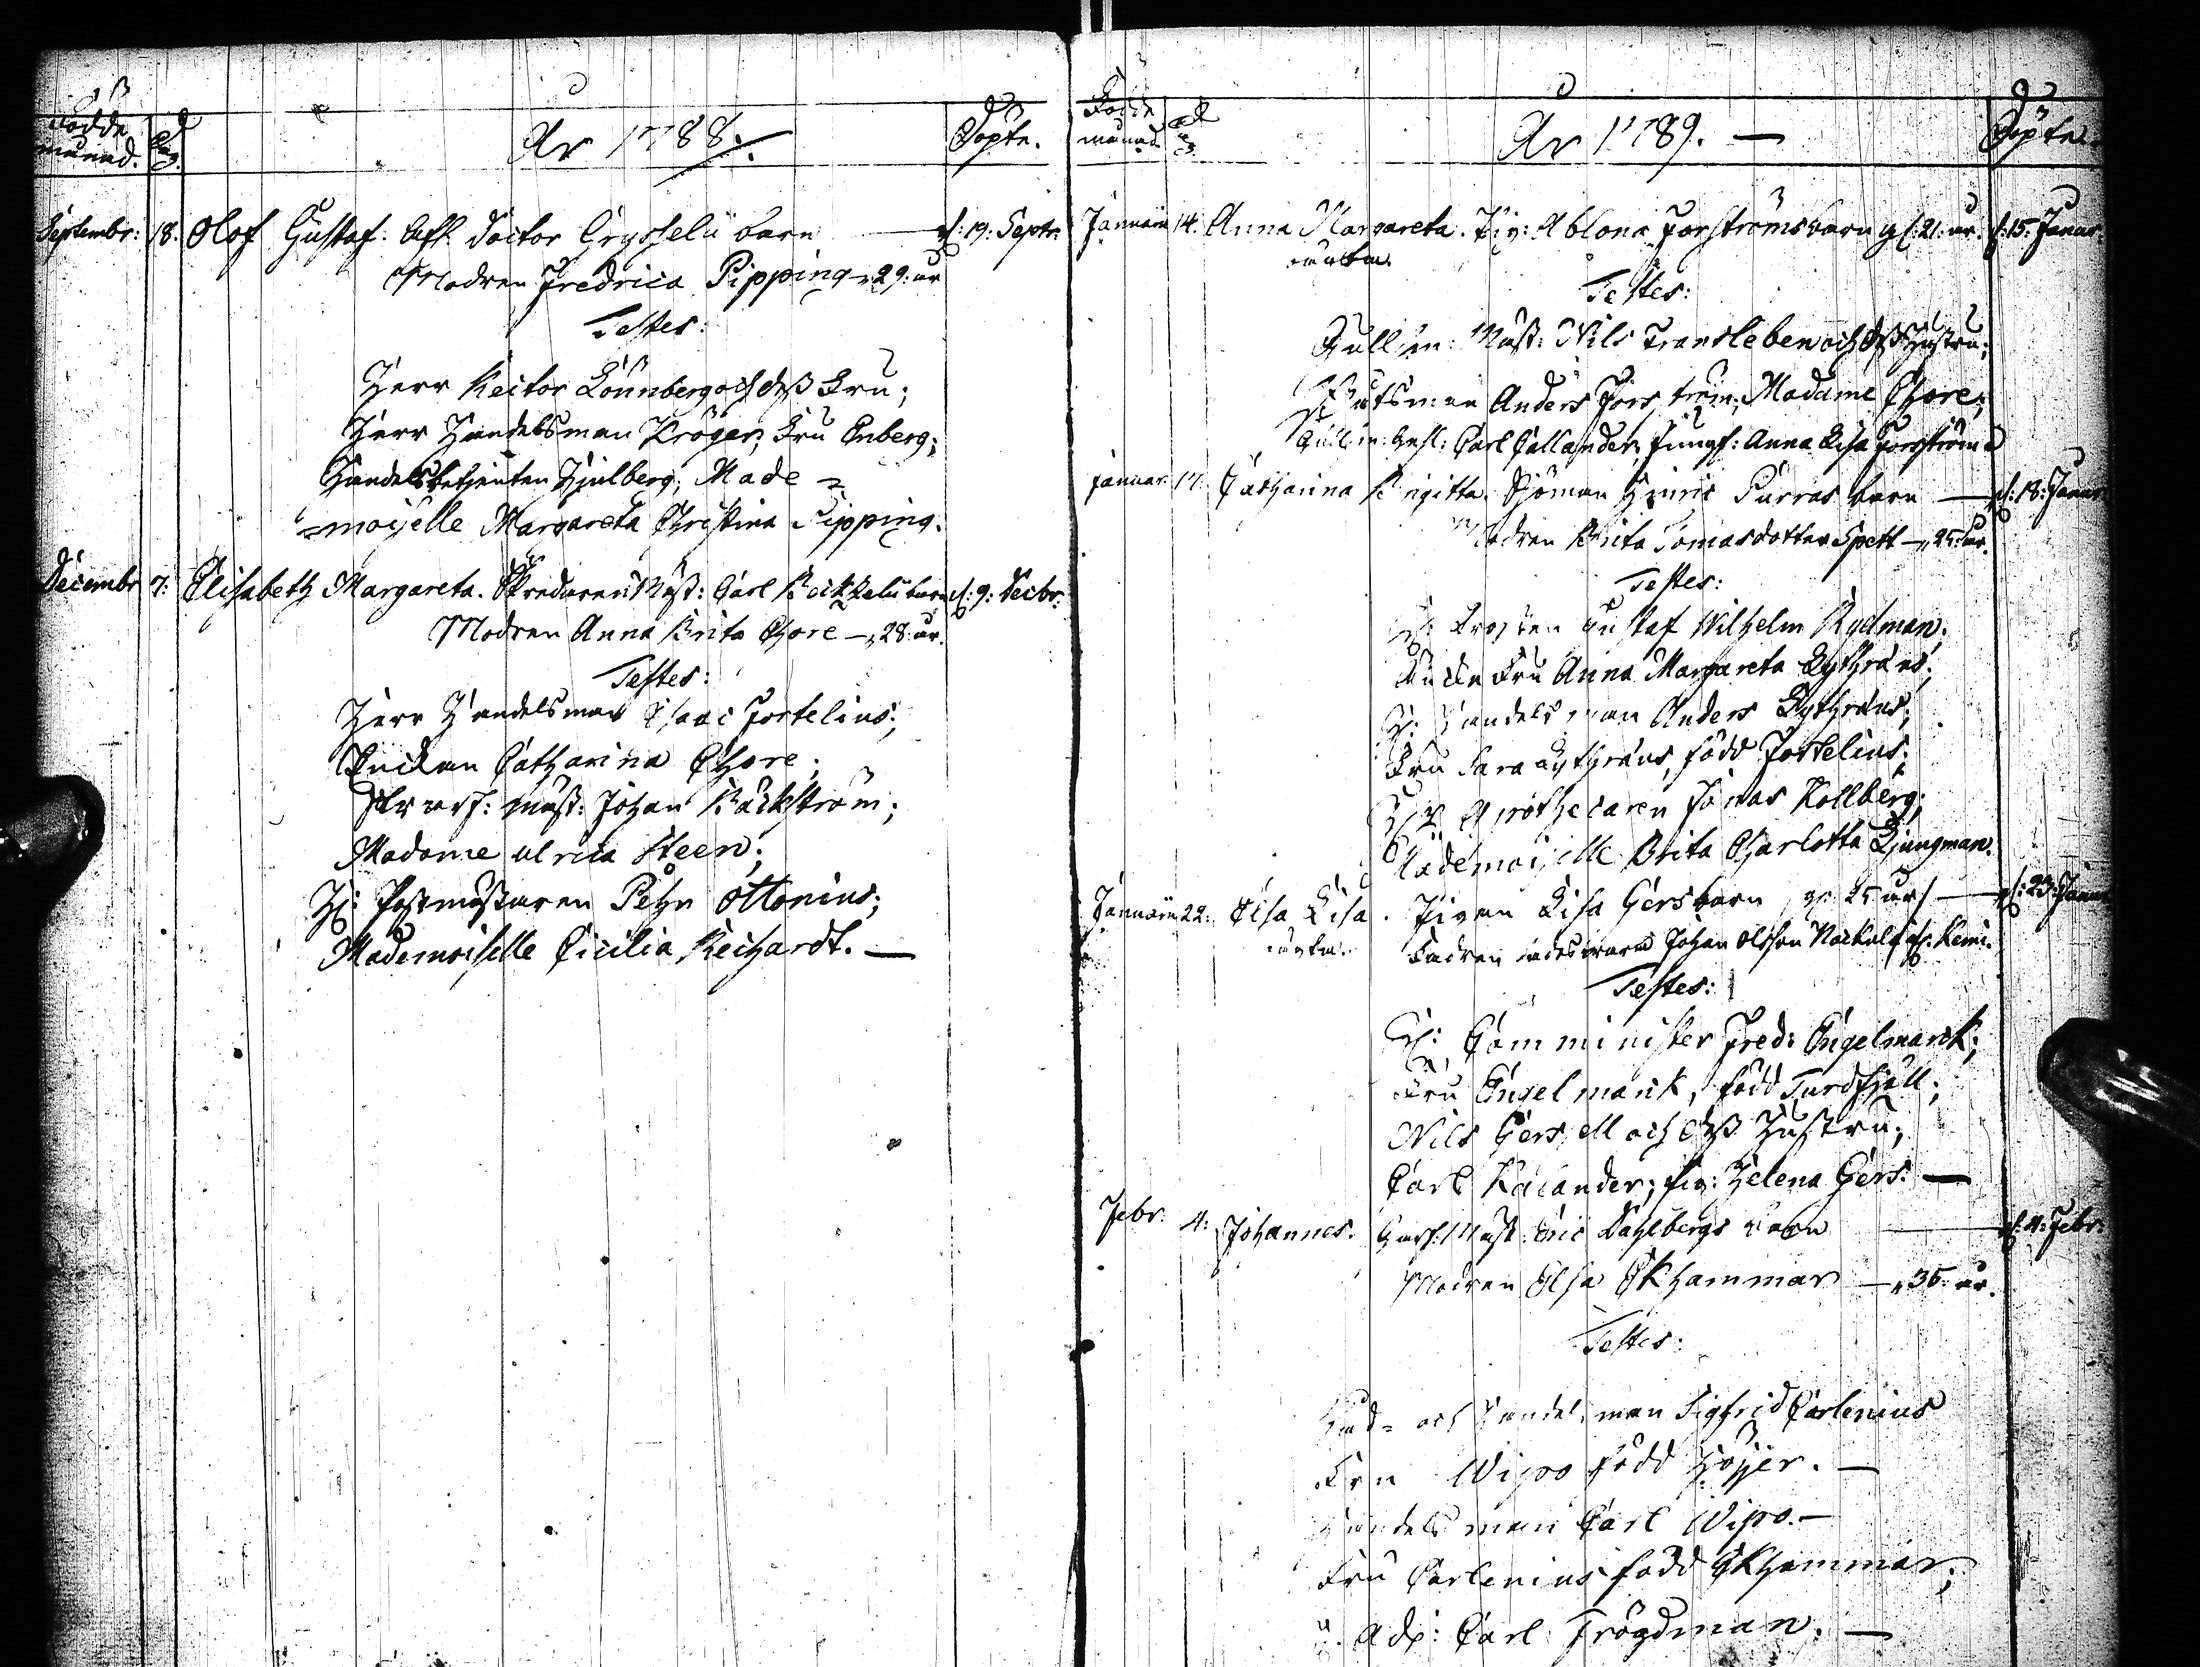 Födde månad. dag. År 1788. Döpte.
Septembr: 18. Olof Gustaf. Afl. Doctor Grysselii barn d: 19: Septr:
Modren Fredrica Pipping, 29. år
Testes:
Herr Rector Lönnberg och dess Fru;
Herr Handelsman Kröger; Fru Enberg;
Handelsbetjenten Hjulberg; Made=
=moiselle Margareta Christina Pipping.
Decembr 7: Elisabeth Margareta. Skredaren Mäst: Carl barn d: 9: Decbr:
Modren Anna Brita Chore – 28. år.
Testes:
Herr Handelsman Isaac Fortelius;
Enckan Catharina Chore;
mäst: Johan Bäckström;
Madame Ulrica Steen;
H: Postmästaren Pehr Ottonius;
Mademoiselle Cicilia Reichardt. —
Födde månad dag År 1789. — Döpte.
Januarii 14. Anna Margareta. Pig: Ablona Forströms barn 21. år. d: 15: Januar:
oäkta.
Testes:
Mäst: Nils Transleben och dess Hustru;
Båtsman Anders Forström; Madame Chore;
Carl Callander; Jungf: Anna Lisa Forström
Januar. 17. Catharina Brigitta. Sjöman Hinric Purras barn — d: 18: Januar
Modren Brita Tomasdotter Spett — 25 år.
Testes:
H: Prosten Gustaf Wilhelm Rydman.
Enke Fru Anna Margareta Lythræus;
H: Handelsman Anders Lythræus;
Fru Sara Lythræus, född Fortelius;
H: Apothecaren Jonas Kollberg;
Mademoiselle Brita Charlotta Ljungman.
Januarii 22: Elsa Lisa. Pigan Lisa Gers barn 25 år — d: 23: Januar
oäkta. Fadren Johan Olsson Kemi.
Testes:
H: Comminister Fred: Engelmark;
Fru Engelmark, född Turdfjæll;
Nils Gers och dess Hustru;
Carl Kaiander; Pig: Helena Gers. —
Febr: 4: Johannes. Mäst. Eric Dahlbergs barn d: 4: Febr:
Modren Elsa Ekhammar — 35. år.
Testes:
Råd- och Handelsman Sigfrid Carlenius
Fru Wipo född Höjjer. —
Handelsman Carl Wipo. —
Fru Carlenius född Ekhammar;
Carl Trögdman. —